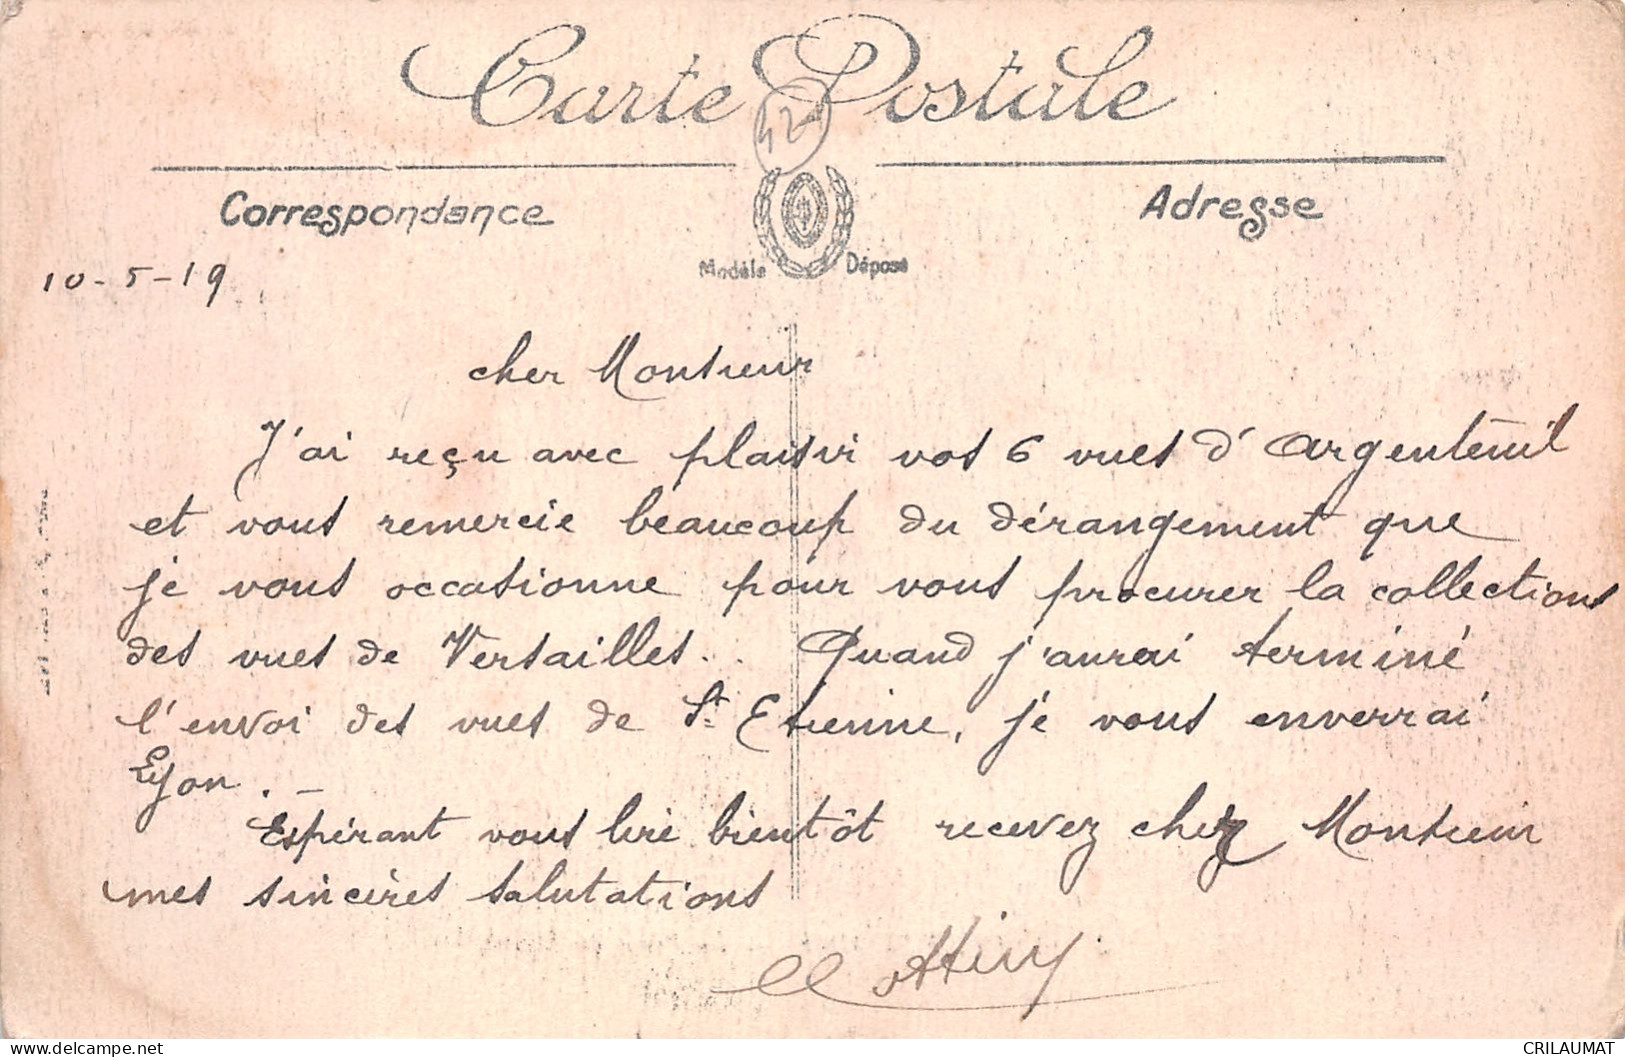 Carte Postale
42
Correspondance
Adresse
Modèle Déposé
10-5-19
cher Monsieur
J'ai reçu avec plaisir vos 6 vues d'Argenteuil
et vous remercie beaucoup du dérangement que
je vous occasionne pour vous procurer la collections
des vues de Versailles.. Quand j'aurai terminé
l'envoi des vues de St Etienne, je vous enverrai
Lyon. –
Espérant vous lire bientôt recevez cher Monsieur
mes sincères salutations
CRILAUMAT